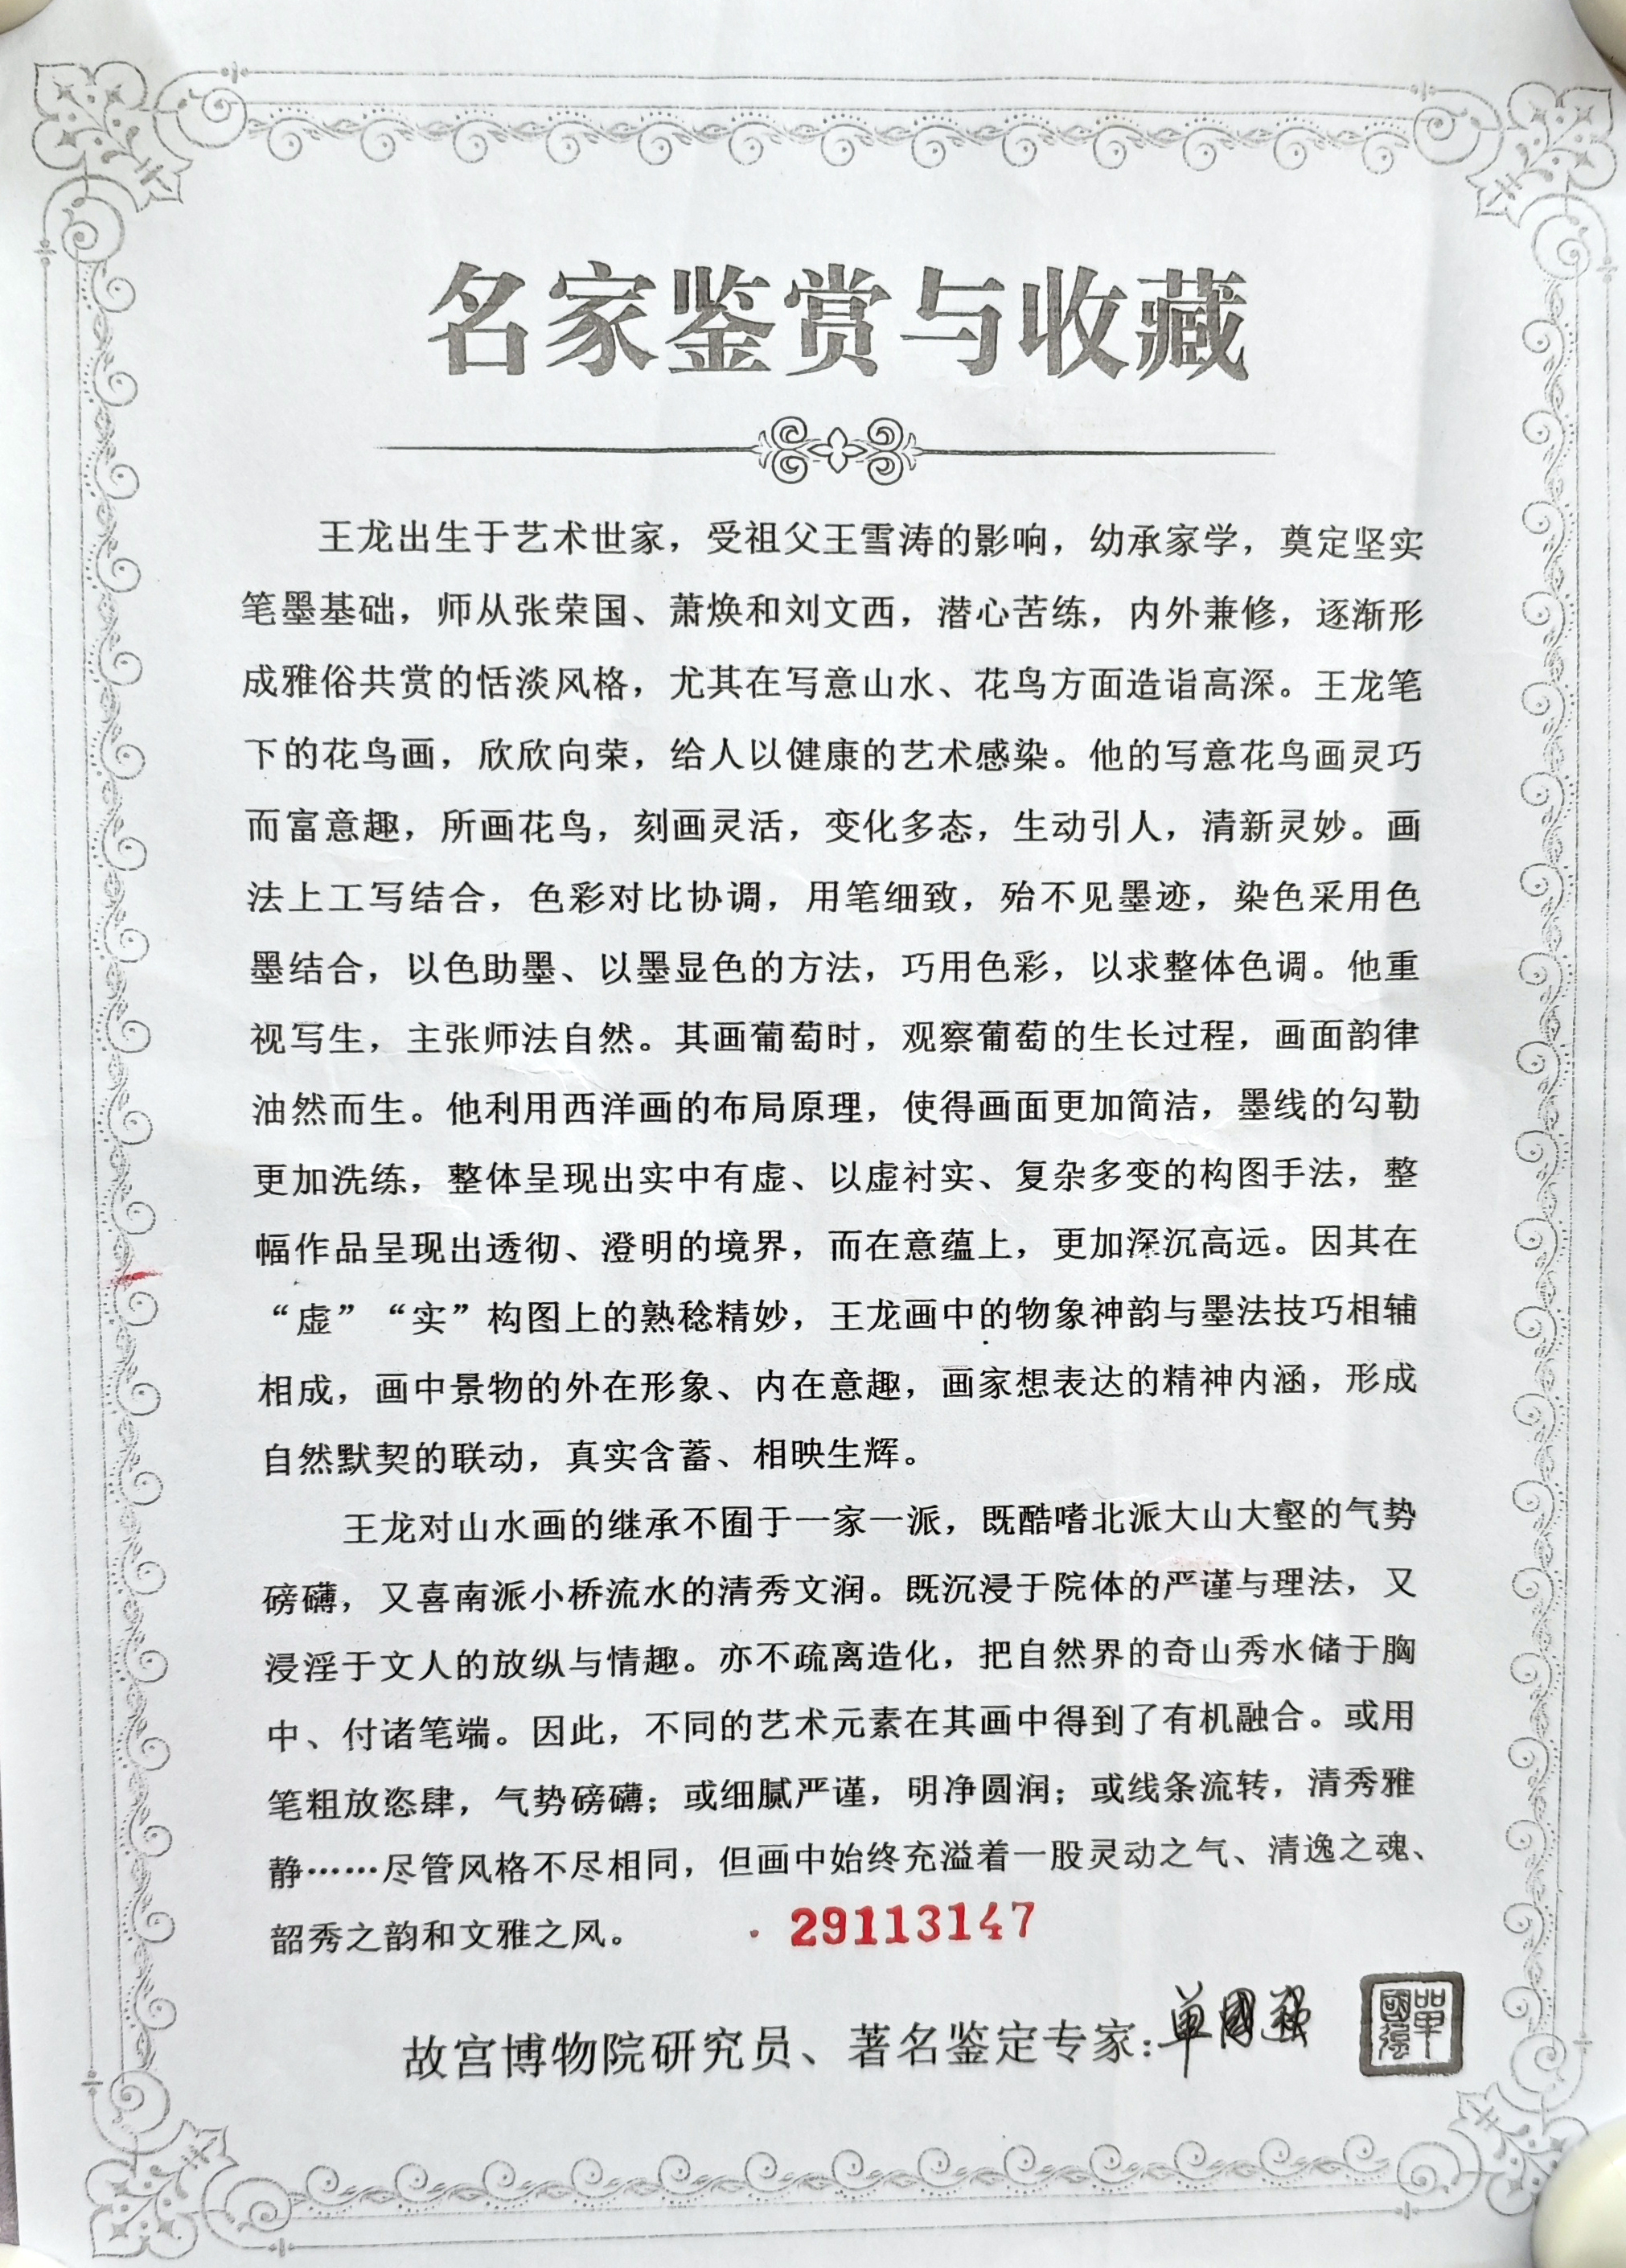 名家鉴赏与收藏
王龙出生于艺术世家，受祖父王雪涛的影响，幼承家学，奠定坚实
笔墨基础，师从张荣国、萧焕和刘文西，潜心苦练，内外兼修，逐渐形
成雅俗共赏的恬淡风格，尤其在写意山水、花鸟方面造诣高深。王龙笔
下的花鸟画，欣欣向荣，给人以健康的艺术感染。他的写意花鸟画灵巧
而富意趣，所画花鸟，刻画灵活，变化多态，生动引人，清新灵妙。画
法上工写结合，色彩对比协调，用笔细致，殆不见墨迹，染色采用色
墨结合，以色助墨、以墨显色的方法，巧用色彩，以求整体色调。他重
视写生，主张师法自然。其画葡萄时，观察葡萄的生长过程，画面韵律
油然而生。他利用西洋画的布局原理，使得画面更加简洁，墨线的勾勒
更加洗练，整体呈现出实中有虚、以虚衬实、复杂多变的构图手法，整
幅作品呈现出透彻、澄明的境界，而在意蕴上，更加深沉高远。因其在
“虚”“实”构图上的熟稔精妙，王龙画中的物象神韵与墨法技巧相辅
相成，画中景物的外在形象、内在意趣，画家想表达的精神内涵，形成
自然默契的联动，真实含蓄、相映生辉。
王龙对山水画的继承不囿于一家一派，既酷嗜北派大山大壑的气势
磅礴，又喜南派小桥流水的清秀文润。既沉浸于院体的严谨与理法，又
浸淫于文人的放纵与情趣。亦不疏离造化，把自然界的奇山秀水储于胸
中、付诸笔端。因此，不同的艺术元素在其画中得到了有机融合。或用
笔粗放恣肆，气势磅礴；或细腻严谨，明净圆润；或线条流转，清秀雅
静……尽管风格不尽相同，但画中始终充溢着一股灵动之气、清逸之魂、
韶秀之韵和文雅之风。
29113147
故宫博物院研究员、著名鉴定专家：单国强
單國强